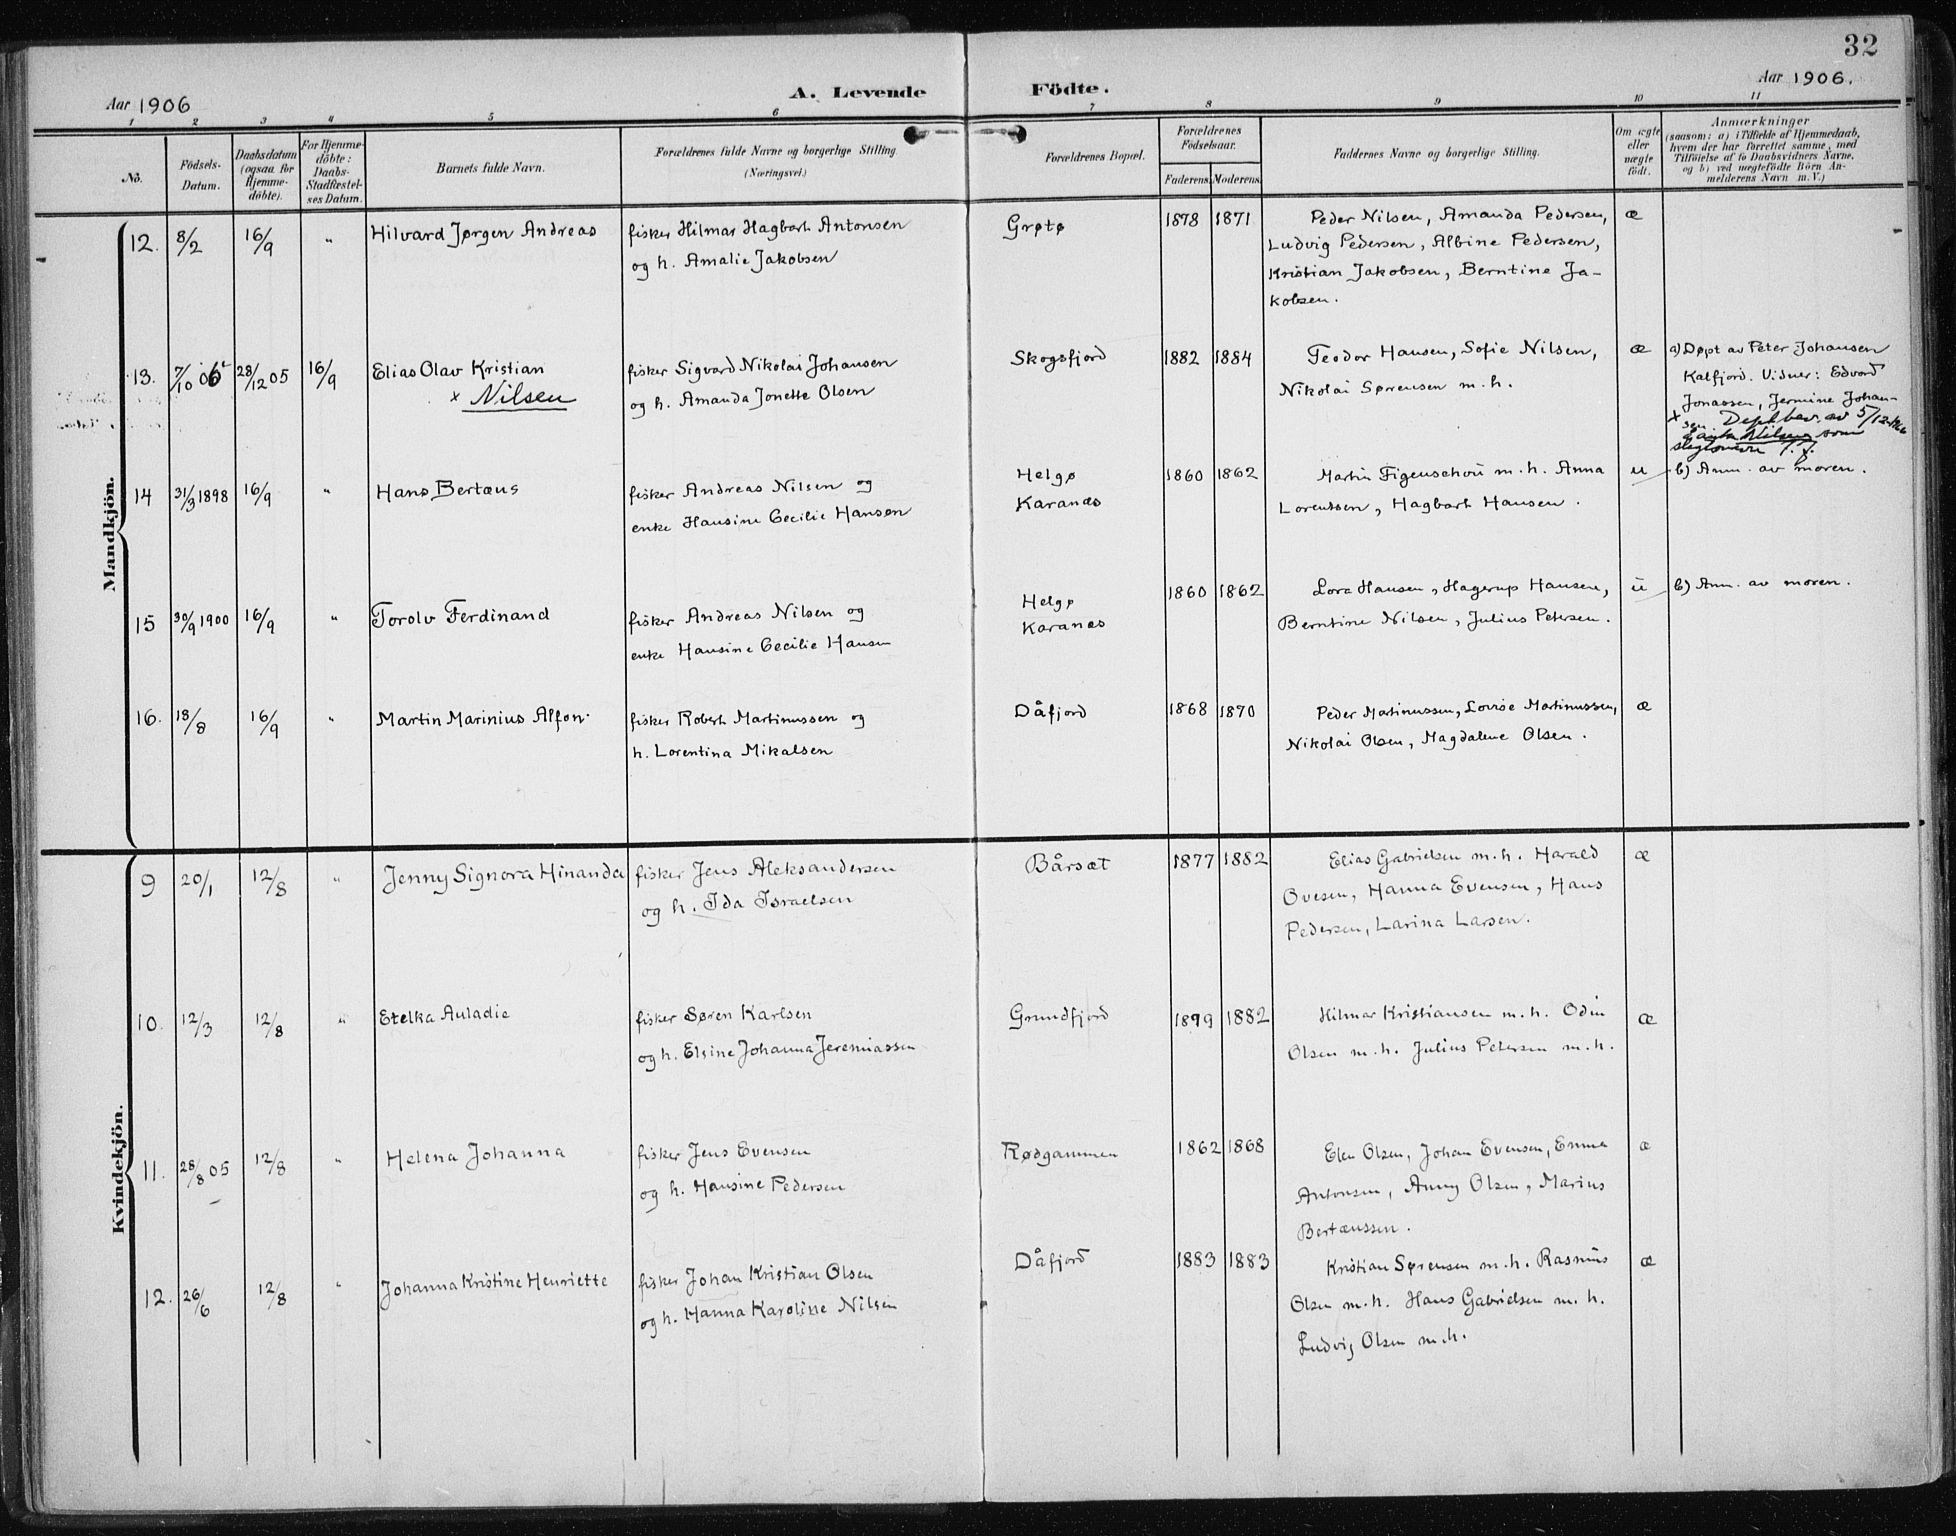 32
Aar 1906
A. Levende Födte.
Aar 1906.
1 2 3 4 5 6 7 8 9 10 11
No.
Födsels-
Datum.
Daabsdatum
(ogsaa for
Hjemme-
döbte).
For Hjemme-
döbte:
Daabs-
Stadfæstel-
ses Datum.
Barnets fulde Navn.
Forældrenes fulde Navne og borgerlige Stilling
(Næringsvei.)
Forældrenes Bopæl.
Forældrenes
Födselsaar.
Faderens. Moderens.
Faddernes Navne og borgerlige Stilling.
Om ægte
eller
uægte
födt.
Anmærkninger
(saasom: a) i Tilfælde af Hjemmedaab,
hvem der har forrettet samme, med
Tilföielse af to Daabsvidners Navne,
og b) ved uægtefödte Börn An-
melderens Navn m. V.)
Mandkjön.
12. 8/2 16/9 " Hilvard Jørgen Andreas
fisker Hilmar Hagbart Antonsen
og h. Amalie Jakobsen
Grøtø 1878 1871
Peder Nilsen, Amanda Pedersen,
Ludvig Pedersen, Albine Pedersen,
Kristian Jakobsen, Berntine Ja-
kobsen.
æ
13. 7/10 28/12 05 16/9 Elias Olav Kristian
x Nilsen
fisker Sigvard Nikolai Johansen
og h. Amanda Jonette Olsen
Skogsfjord 1882 1884
Teodor Hansen, Sofie Nilsen,
Nikolai Sørensen m. h.
æ
a) Døpt av Peter Johansen
Kalfjord. Vidner: Edvard
Jonassen, Jermine Johan-
sen
x Dept. bev. av 5/12
Nilsen som
slegtsnavn
14 31/3 1898 16/9 " Hans Bertæus
fisker Andreas Nilsen og
enke Hansine Cecilie Hansen
Helgø
Karanæs
1860 1862
Martin Figenschou m. h. Anna
Lorentsen, Hagbart Hansen.
u b) Anm. av moren.
15 30/9 1900 16/9 " Torolv Ferdinand
fisker Andreas Nilsen og
enke Hansine Cecilie Hansen
Helgø
Karanæs
1860 1862
Lora Hansen, Hagerup Hansen,
Berntine Nilsen, Julius Petersen.
u b) Anm. av moren.
16. 18/8 16/9 " Martin Marinius Alfon.
fisker Robert Martinussen og
h. Lorentina Mikalsen
Dåfjord 1868 1870
Peder Martinussen, Lovise Martinussen,
Nikolai Olsen, Magdalene Olsen.
æ
Kvindekjön.
9 20/1 12/8 " Jenny Signora Hinanda
fisker Jens Aleksandersen
og h. Ida Israelsen
Bårsæt 1877 1882
Elias Gabrielsen m. h. Harald
Ovesen, Hanna Evensen, Hans
Pedersen, Larina Larsen.
æ
10. 12/3 12/8 " Etelka Auladie
fisker Søren Karlsen
og h. Elsine Johanna Jeremiassen
Grundfjord 1899 1882
Hilmar Kristiansen m. h. Odin
Olsen m. h. Julius Petersen m. h.
æ
11. 28/8 05 12/8 " Helena Johanna
fisker Jens Evensen
og h. Hansine Pedersen
Rødgammen 1862 1868
Elen Olsen, Johan Evensen, Emma
Antonsen, Anny Olsen, Marius
Bertæussen.
æ
12. 26/6 12/8 " Johanna Kristine Henriette
fisker Johan Kristian Olsen
og h. Hanna Karoline Nilsen
Dåfjord 1883 1883
Kristian Sørensen m. h. Rasmus
Olsen m. h. Hans Gabrielsen m. h.
Ludvig Olsen m. h.
æ